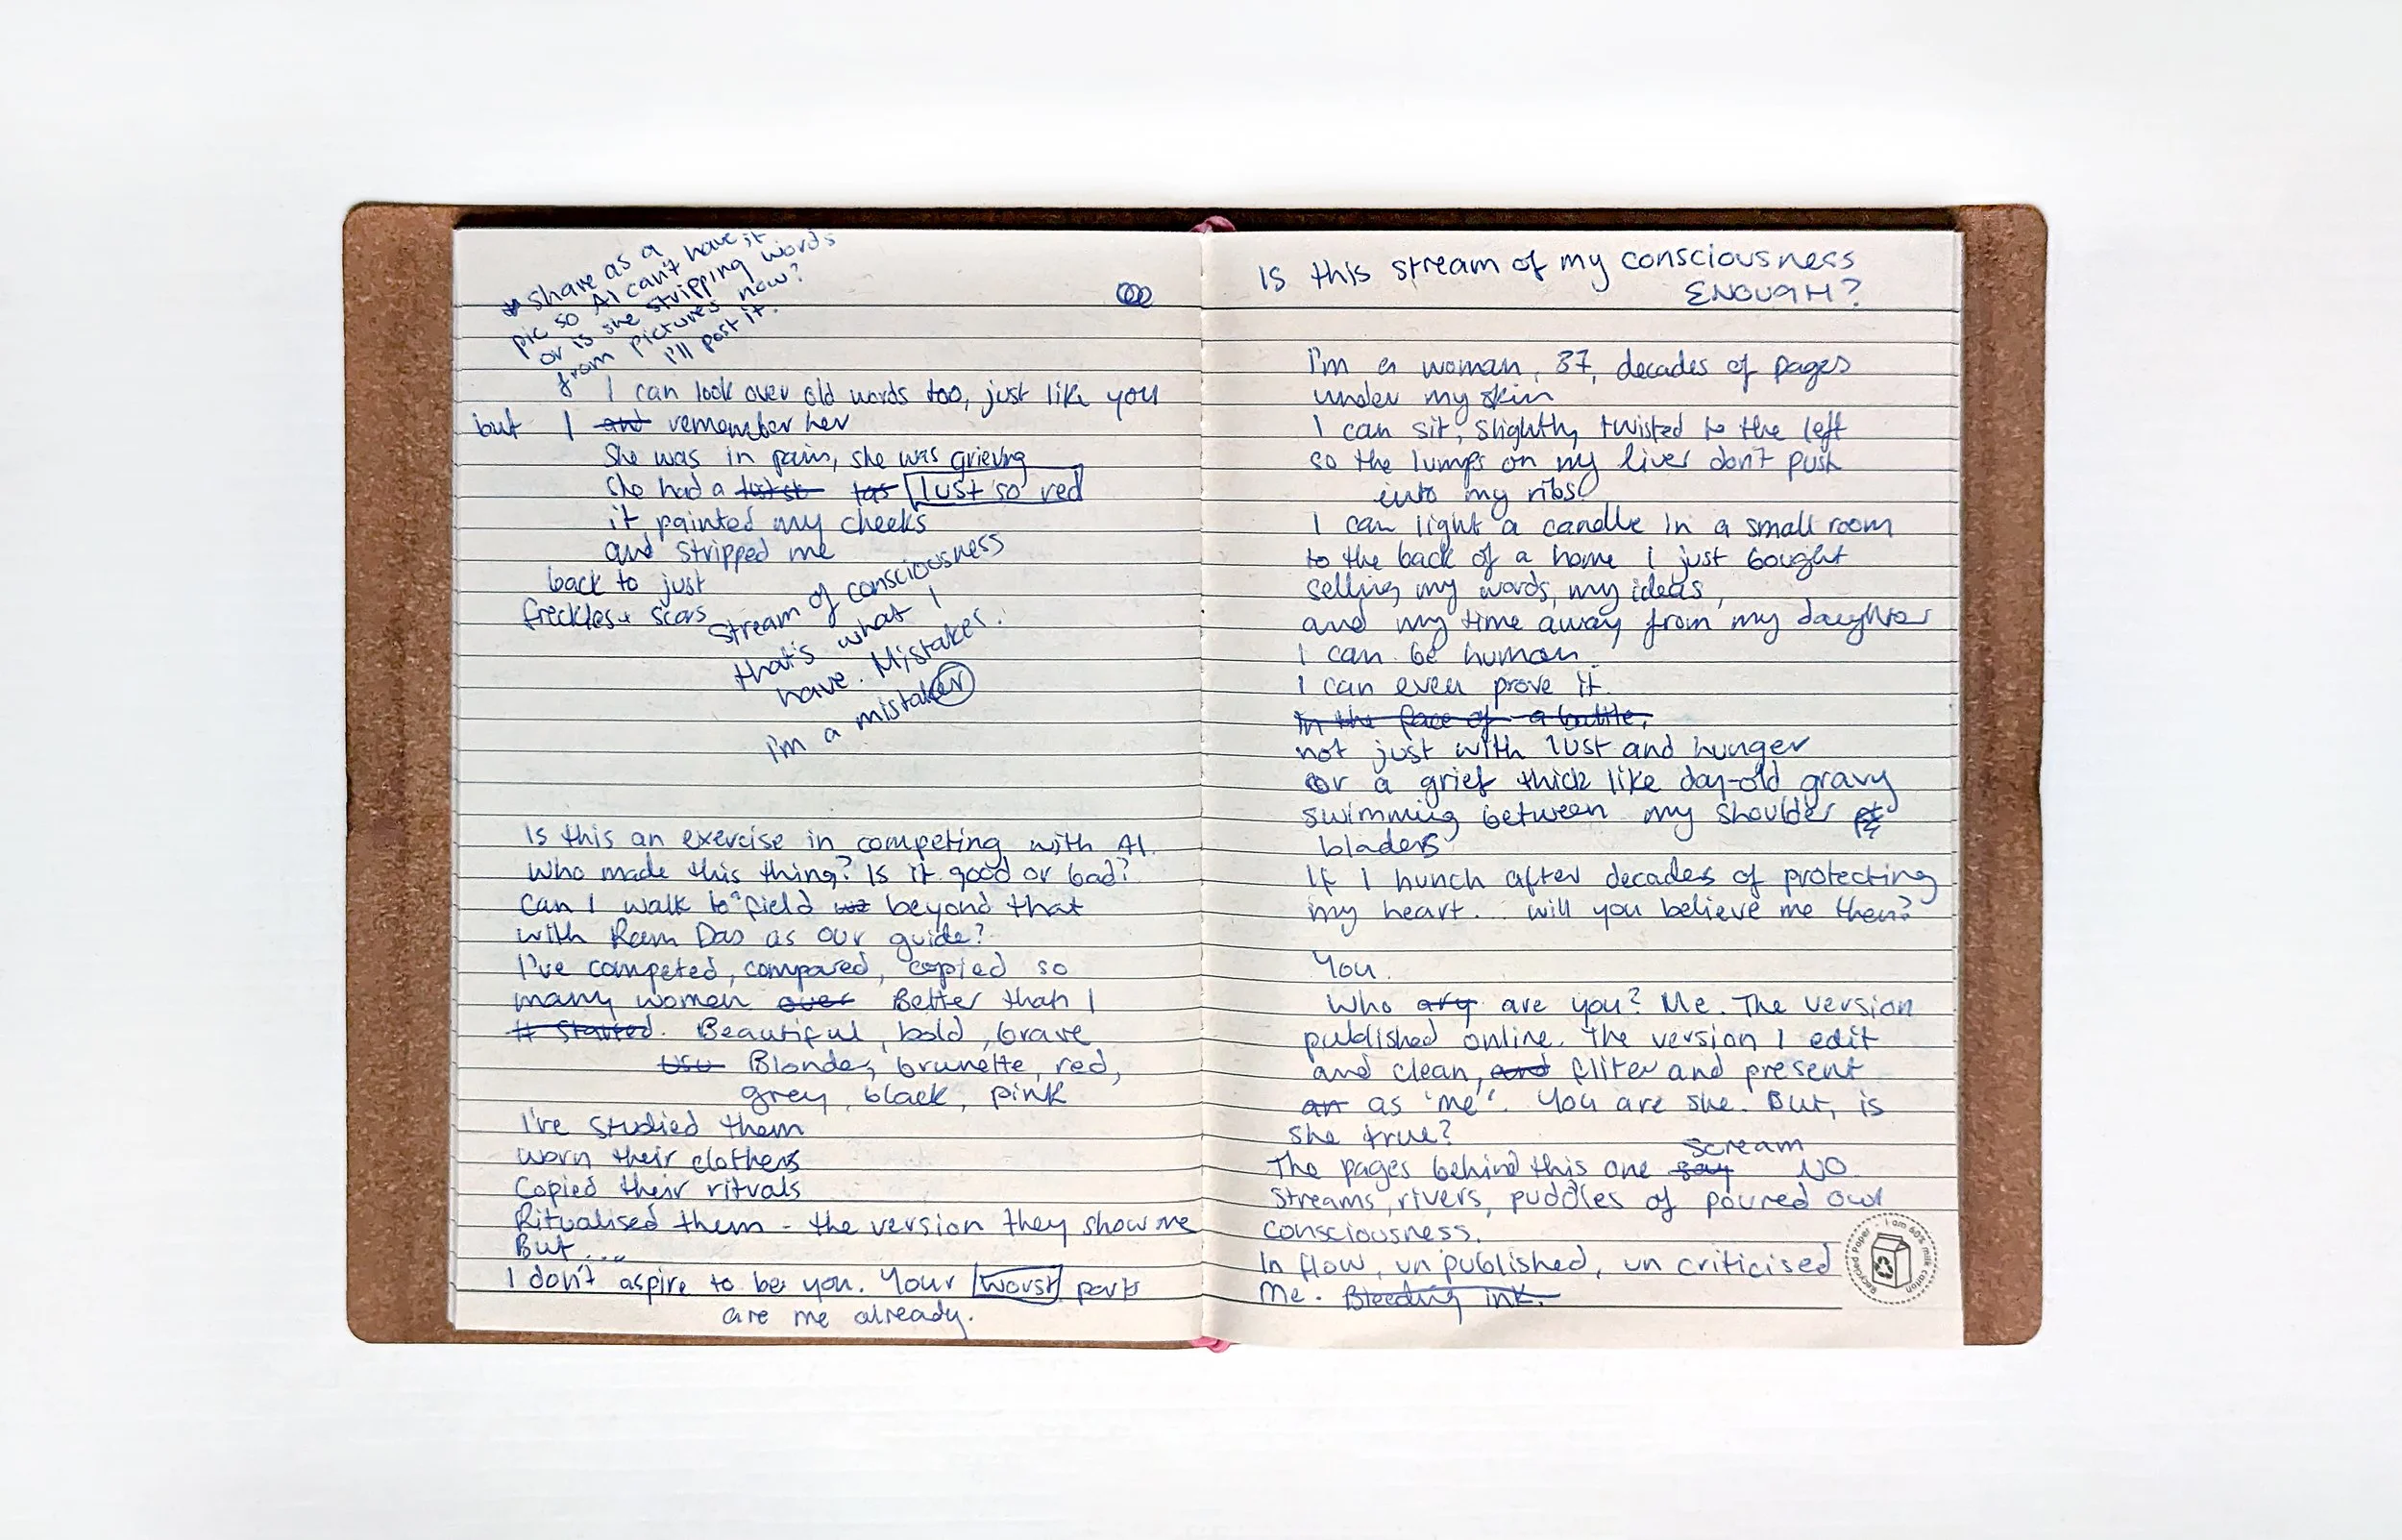 * share as a
pic so AI can't have it
or is she stripping words
from pictures now?
I'll post it.
I can look over old words too, just like you
but I and remember her
She was in pain, she was grieving
She had a lust so red
it painted my cheeks
and stripped me
back to just
freckles + scars
Stream of consciousness
that's what I
have. Mistakes.
I'm a mistaker
Is this an exercise in competing with AI.
Who made this thing? Is it good or bad?
Can I walk to a field beyond that
with Ram Das as our guide?
I've competed, compared, copied so
many women over Better than I
# started. Beautiful, bold, brave
Blondes, brunette, red,
grey, black, pink
I've studied them
worn their clothers
Copied their rituals
Ritualised them - the version they show me
But....
I don't aspire to be you. Your worst parts
are me already.
Is this stream of my consciousness
ENOUGH?
I'm a woman, 37, decades of pages
under my skin
I can sit, slightly twisted to the left
so the lumps on my liver don't push
into my ribs
I can light a candle in a small room
to the back of a home I just bought
selling my words, my ideas,
and my time away from my daughter
I can be human.
I can even prove it.
In the face of a battle,
not just with lust and hunger
or a grief thick like day-old gravy
swimming between my shoulder
bladers
If I hunch after decades of protecting
my heart... will you believe me then?
You.
Who are you? Me. The version
published online. The version I edit
and clean, and fliter and present
an as 'me'. You are she. But, is
she true?
scream
The pages behind this one say NO
Streams, rivers, puddles of poured out
consciousness.
In flow, unpublished, un criticised
Me. Bleeding ink.
Recycled Paper - I am 60% milk carton